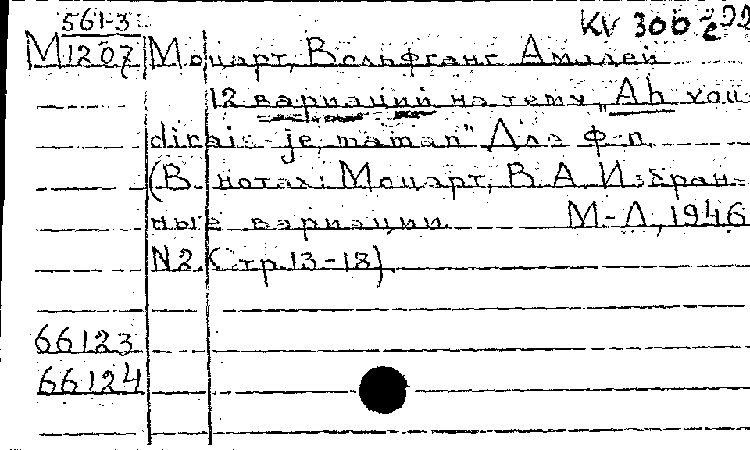 561-3 KV 300
М1207 Моцарт, Вольфганг Амадей
12 вариаций на тему „Ah vou
dirais-je maman" Для ф-п.
(В нотах: Моцарт, В.А. Избран-
ные вариации. М-Л, 1946
N2. Стр. 13-18).
66123
66124